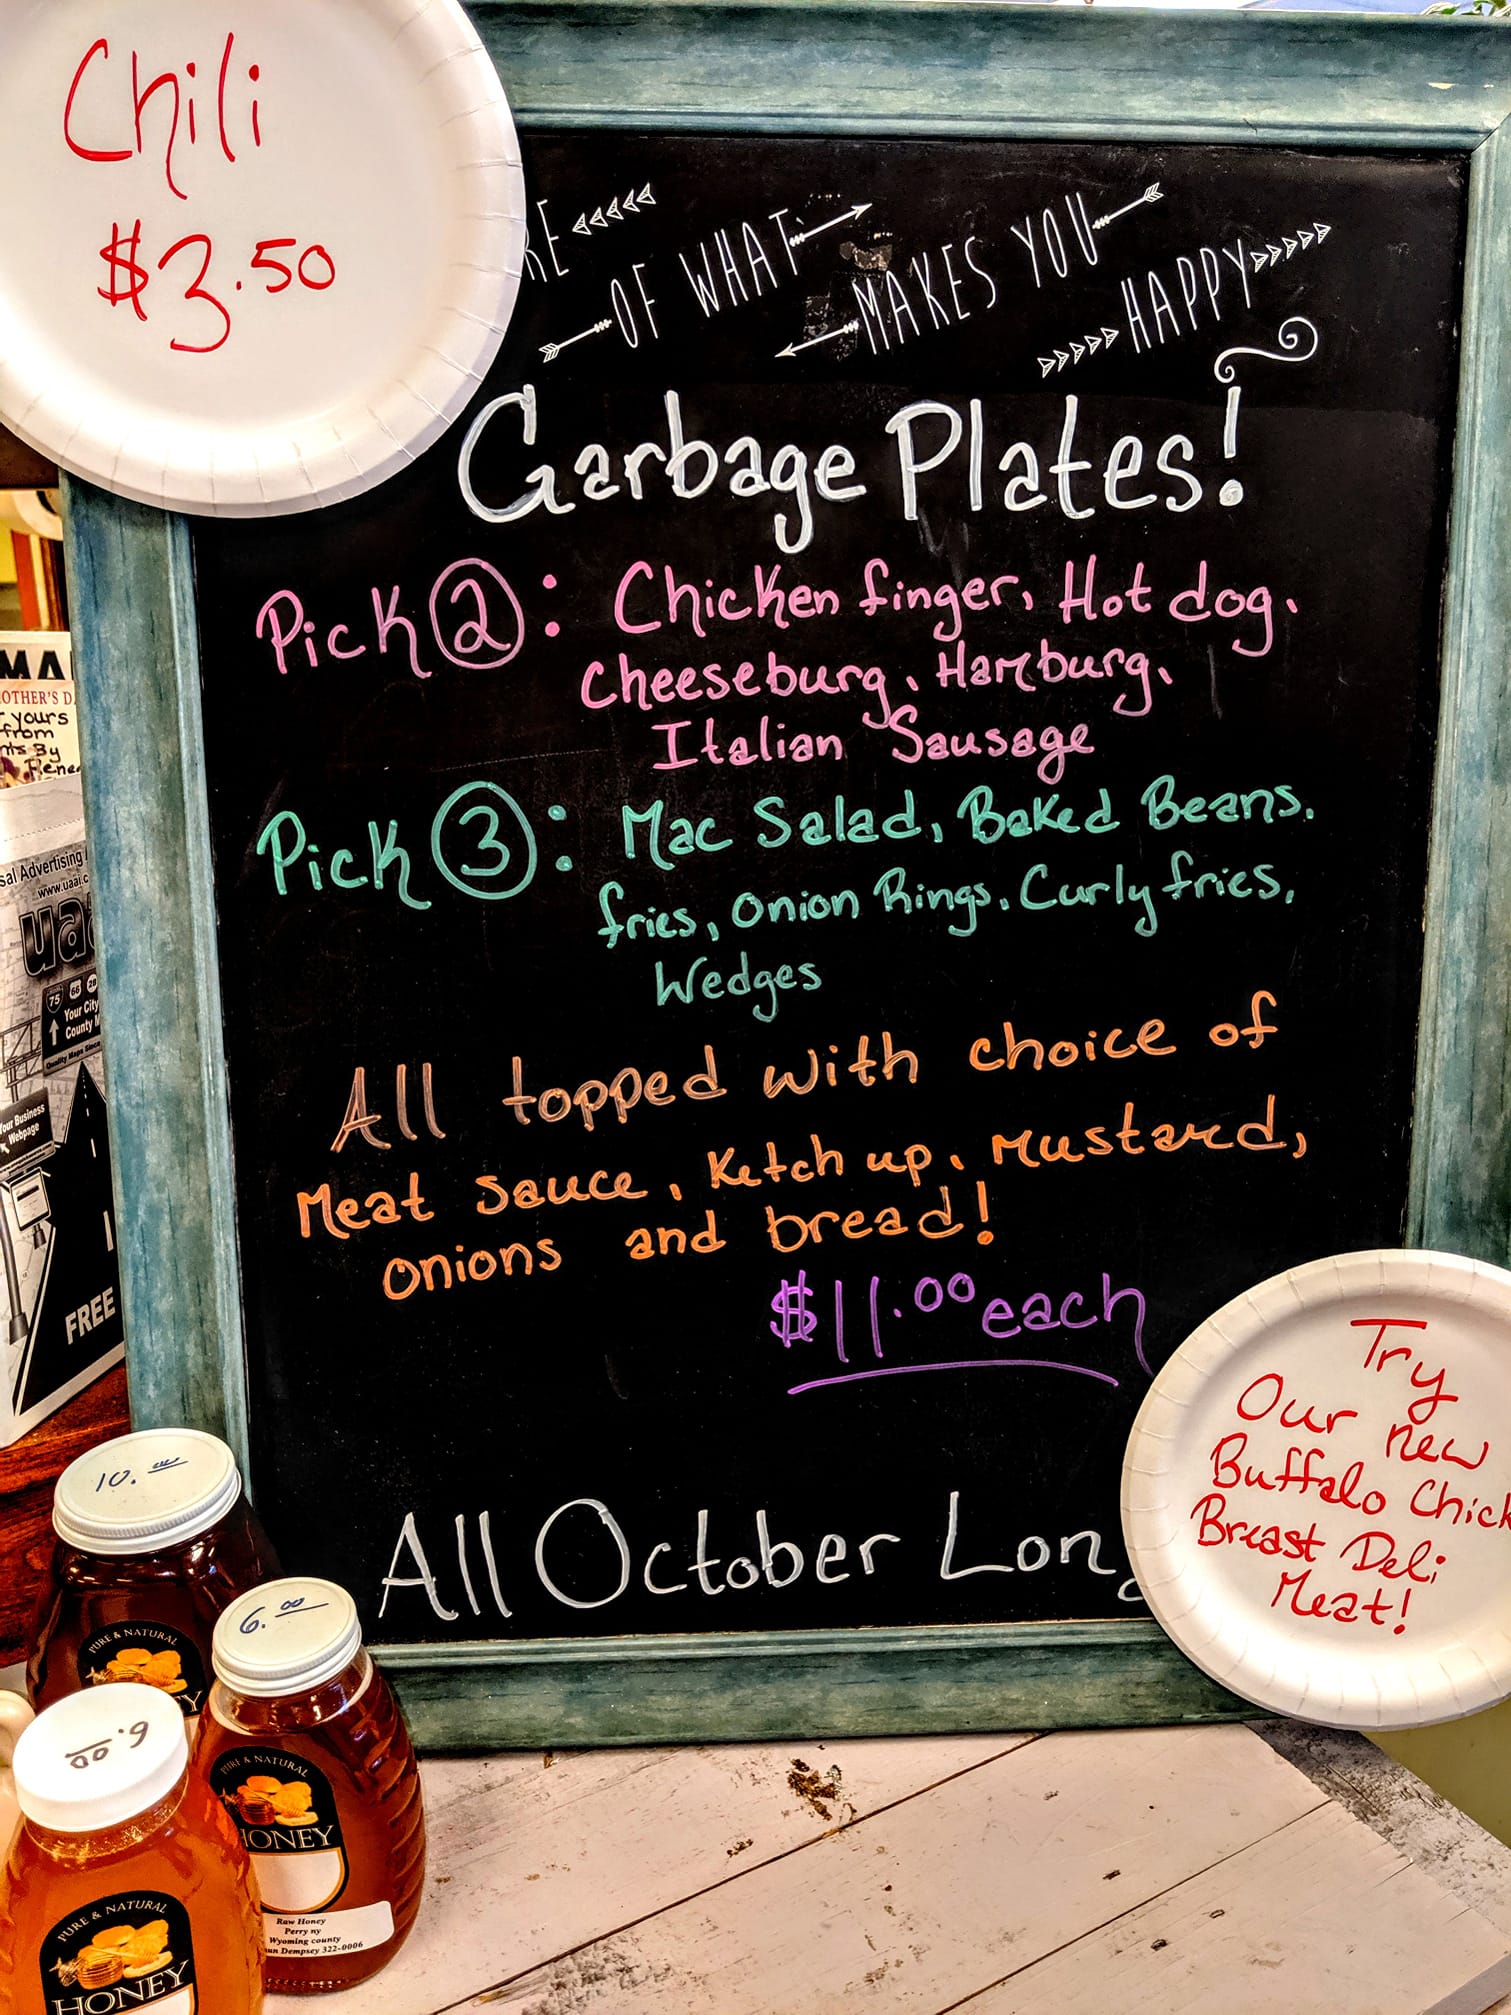 Chili
$3.50
OF WHAT
MAKES YOU
HAPPY
Garbage Plates!
Pick 2: Chicken finger, Hot dog,
Cheeseburg, Hamburg,
Italian Sausage
Pick 3: Mac Salad, Baked Beans,
fries, Onion Rings, Curly fries,
Wedges
All topped with choice of
Meat Sauce, Ketchup, Mustard,
onions and bread!
$11.00 each
All October Long
Try
Our new
Buffalo Chick
Breast Deli
Meat!
10.00
PURE & NATURAL
6.00
PURE & NATURAL
HONEY
Raw Honey
Perry ny
Wyoming county
Dempsey 322-0006
6.00
PURE & NATURAL
HONEY
MA
yours
from
By
Advertising
www.uaai.c
75
Your City
County M
Quality Maps Since
Your Business
Webpage
FREE